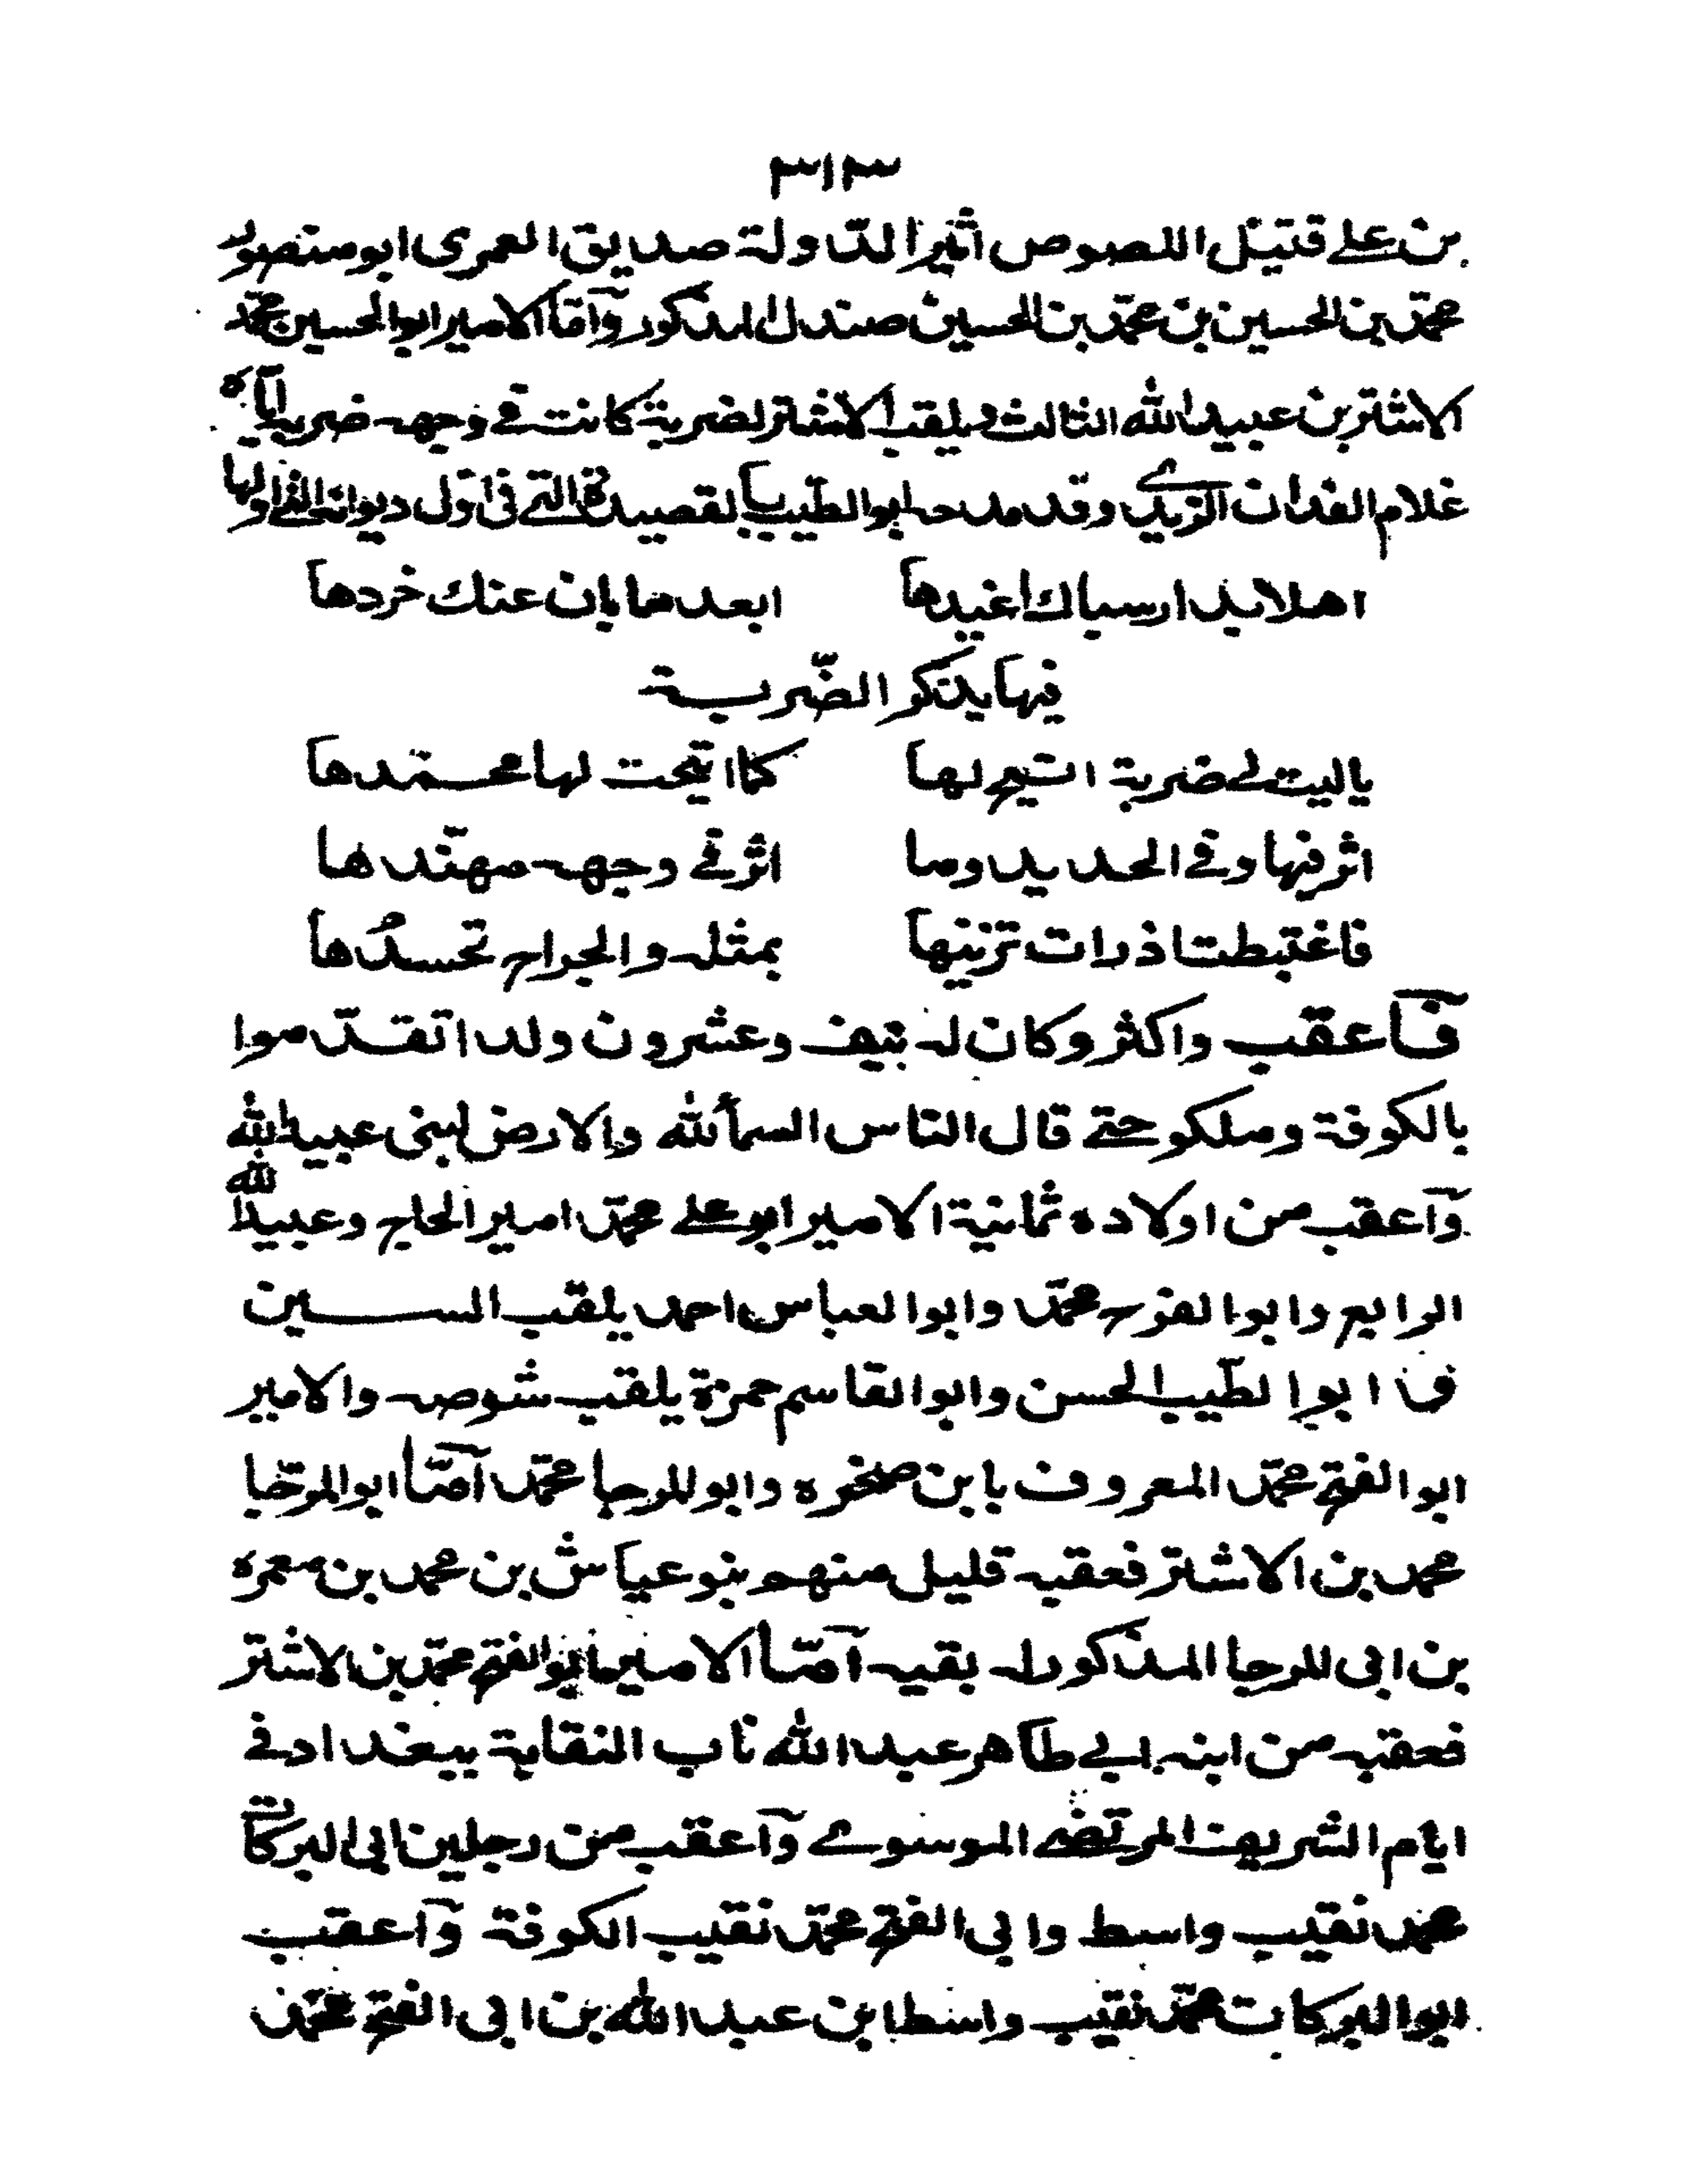 ٣١٣
بن على قتيل اللصوص اثير الدّولة صديق العمرى ابو منصور
محمّد بن الحسين بن محمّد بن الحسين صندل المذكور وآمّا الامير ابو الحسين محمّد
الاشتر بن عبيد الله الثالث ويلقب الاشتر لضربة كانت فى وجهه ضربه اياه
غلام الفدان الزيدى وقد مدحه ابو الطيّب بالقصيدة التى فى اوّل ديوانه التى اولها
اهلا بدار سباك اغيدها ابعد ما بان عنك خردها
فيها يذكر الضّربة
ياليت لى ضربة اتيح لها كما اتيحت لها محمّدها
اثر فيها وفى الحديد وما اثر فى وجهه مهنّدها
فاغتبطت اذ رات تزينها بمثله والجراح تحسدُها
فآعقب واكثر وكان له نيف وعشرون ولدا تقدّموا
بالكوفة وملكو حتى قال النّاس السمأ لله والارض لبنى عبيد الله
وآعقب من اولاده ثمانية الامير ابو على محمّد امير الحاج وعبيد الله
الرابع وابو الفرج محمّد وابو العباس احمد يلقب السـين
ف ابو الطيّب الحسن وابو القاسم حمزة يلقب شوصه والامير
ابو الفتح محمّد المعروف بابن صخره وابو المرجا محمّد آمّا ابو المرجا
محمد بن الاشتر فعقبه قليل منهم بنو عياش بن محمد بن معمره
بن ابى المرجا المذكور له بقيه آمّا الامير ابو الفتح محمّد بن الاشتر
فعقبه من ابنه ابى طاهر عبد الله ناب النقابة ببغداد فى
ايام الشريف المرتضى الموسوى وآعقب من رجلين ابى البركات
محمد نقيب واسط وابى الفتح محمّد نقيب الكوفة وآعقب
ابو البركات محمّد نقيب واسط ابن عبد الله بن ابى الفتح محمّد